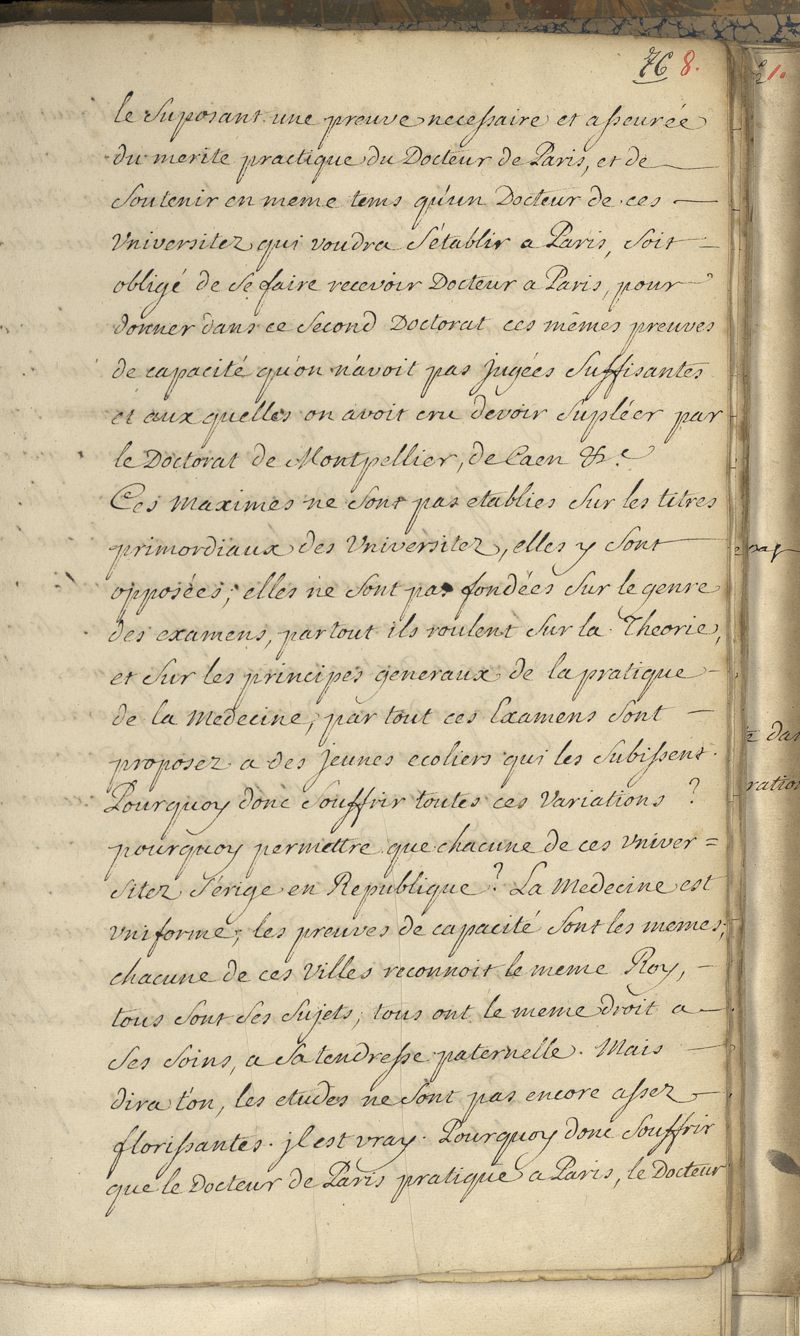 76 8.
le Suposant une preuve necessaire et asseurée
du merite practique du Docteur de Paris, et de
Soutenir en meme tems qu'un Docteur de ces
Vniversitez qui voudra S'établir a Paris, Soit
obligé de Se faire recevoir Docteur a Paris, pour
donner dans ce Second Doctorat ces mêmes preuves
de capacité qu'on n'avoit pas Jugées Suffisantes
et aux quelles on avoit cru devoir Supléer par
le Doctorat de Montpellier, de Caen &c.
Ces Maximes ne Sont pas etablies Sur les titres
primordiaux des Vniversitez, elles y Sont
opposées; elles ne Sont pas fondées Sur le genre
des examens, partout ils roulent Sur la Theorie,
et Sur les principes generaux de la pratique
de la Medecine, par tout ces Examens Sont
proposez a des Jeunes ecoliers qui les Subissent.
Pourquoy donc Souffrir toutes ces Variations ?
pourquoy permettre que chacune de ces Vniver=
Sitez S'érige en Republique ? La Medecine est
Vniforme, les preuves de capacité Sont les memes,
chacune de ces Villes reconnoit le meme Roy,
tous Sont Ses Sujets, tous ont le meme droit a
Ses Soins, a Sa tendresse paternelle. Mais
dira t'on, les etudes ne Sont pas encore assez
florissantes. jl est vray. Pourquoy donc Souffrir
que le Docteur de Paris pratique a Paris, le Docteur